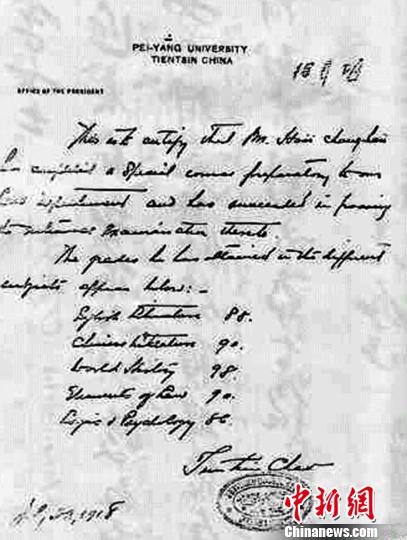 PEI-YANG UNIVERSITY
TIENTSIN CHINA
OFFICE OF THE PRESIDENT
This is to certify that Mr. Hsü
has completed a Special course preparatory to our
Law department and has succeeded in passing
the entrance examination thereto.
The grades he has attained in the different
subjects appear below:-
English Literature 88.
Chinese Literature 90.
World History 98.
Elements of Law 90.
Logic & Psychology 86.
Tientsin Chao
1918
中新网
Chinanews.com